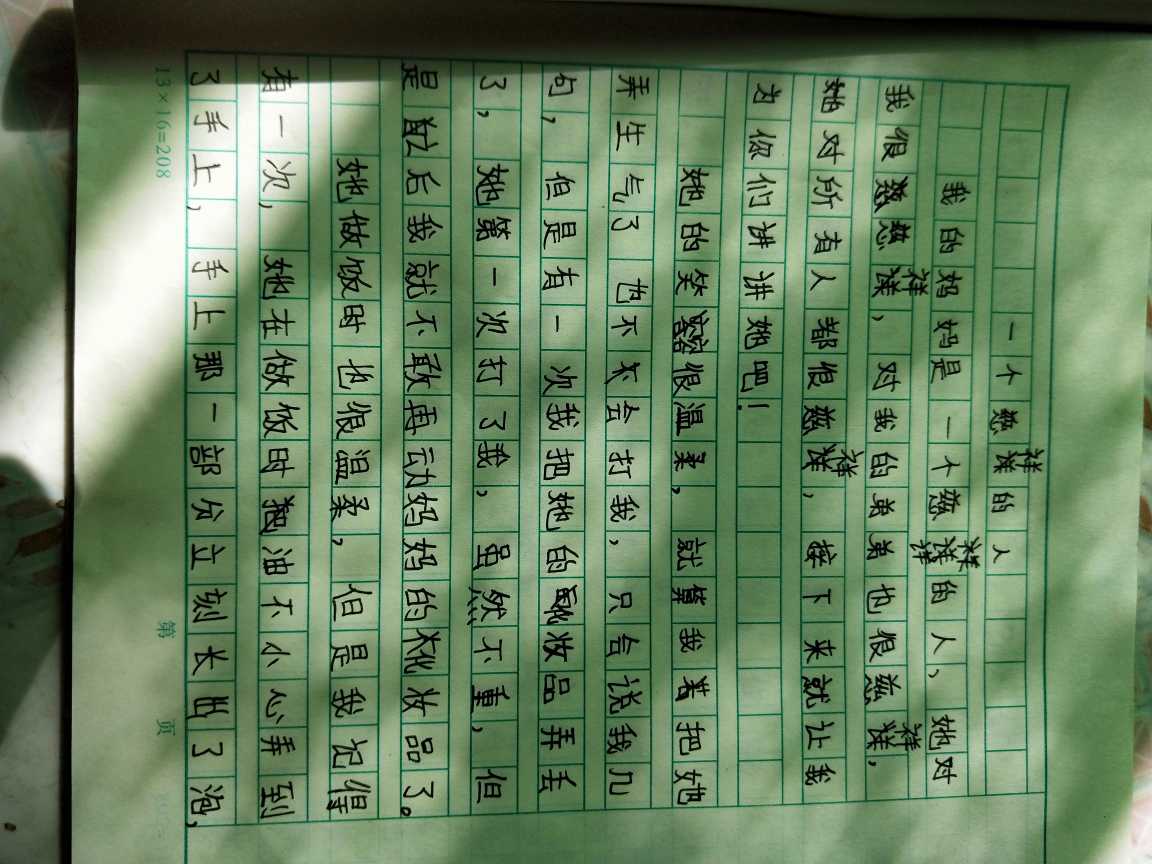 一个慈祥的人
我的妈妈是一个慈祥的人，她对
我很慈祥，对我的弟弟也很慈祥，
她对所有人都很慈祥，接下来就让我
为你们讲讲她吧！
她的笑容很温柔，就算我若把她
弄生气了 也不会打我，只会说我几
句，但是有一次我把她的化妆品弄丢
了，她第一次打了我，虽然不重，但
是在后我就不敢再动妈妈的化妆品了。
她做饭时也很温柔，但是我记得
有一次，她在做饭时把油不小心弄到
了手上，手上那一部分立刻长出了泡，
13×16=208
第 页